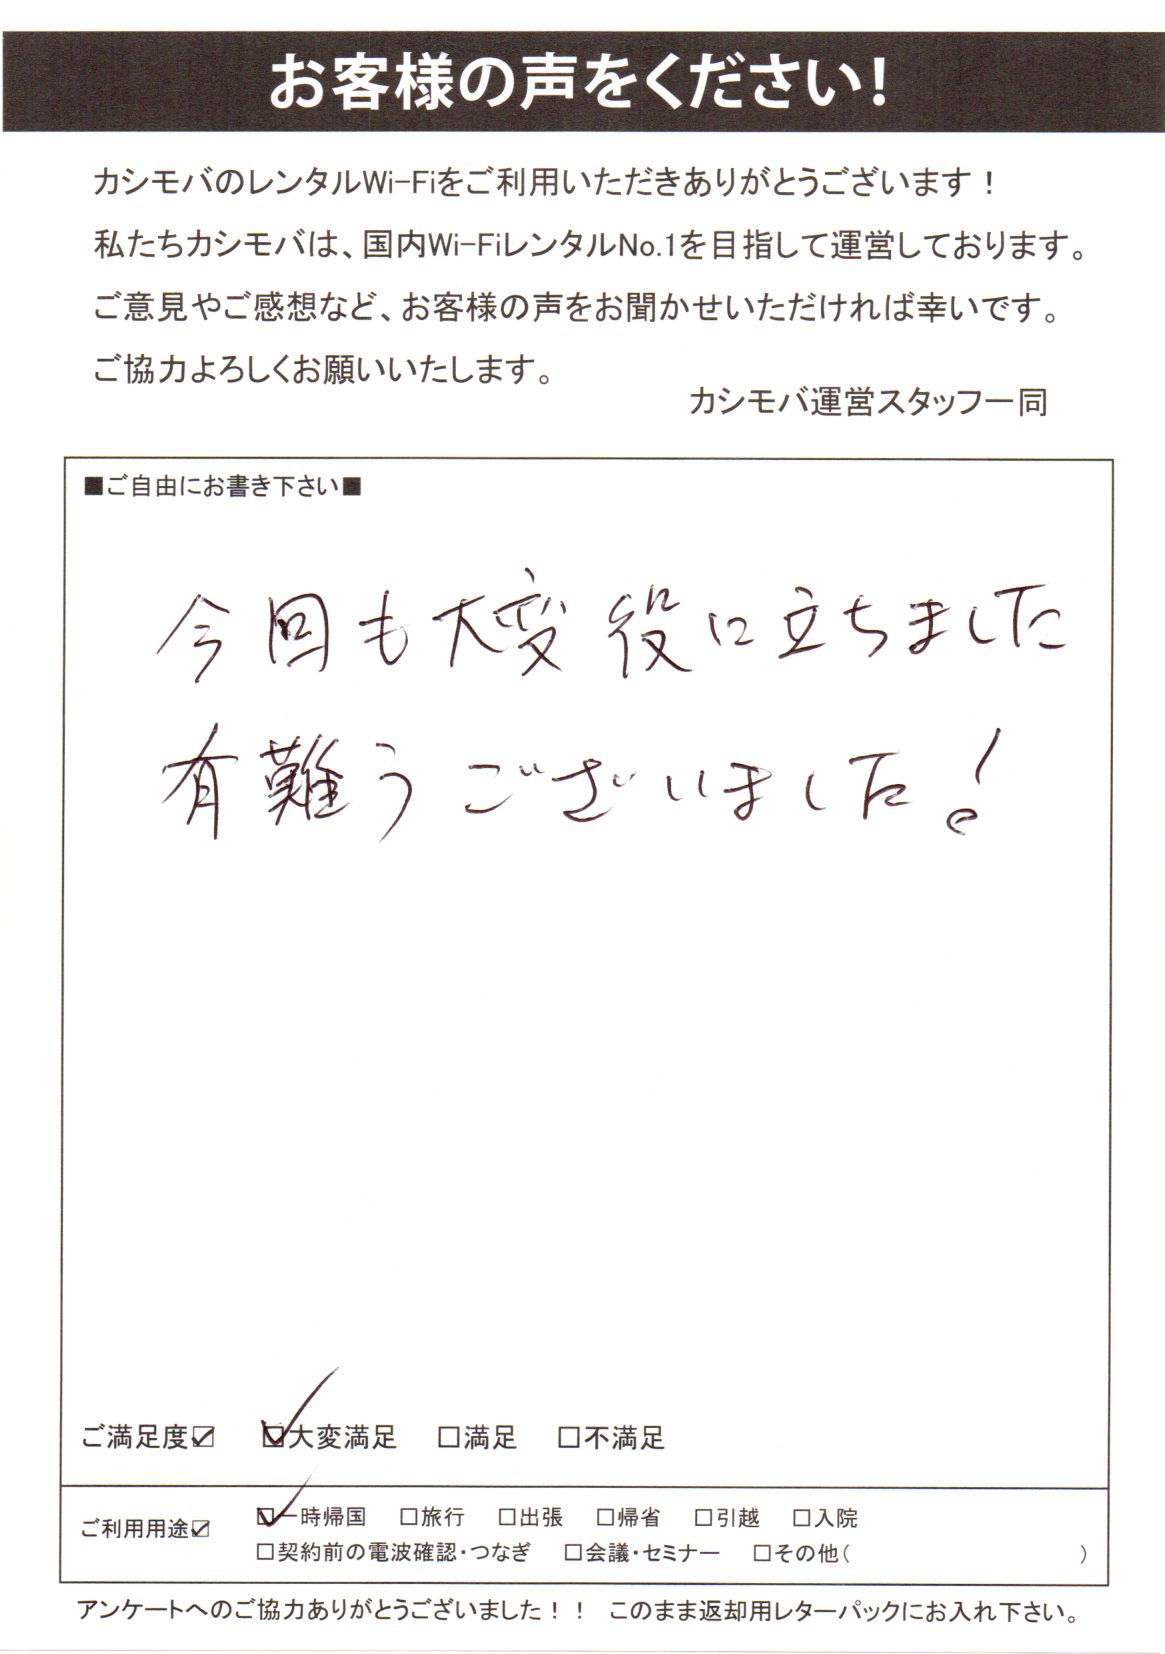 お客様の声をください!
カシモバのレンタルWi-Fiをご利用いただきありがとうございます！
私たちカシモバは、国内Wi-FiレンタルNo.1を目指して運営しております。
ご意見やご感想など、お客様の声をお聞かせいただければ幸いです。
ご協力よろしくお願いいたします。
カシモバ運営スタッフ一同
■ご自由にお書き下さい■
今回も大変役に立ちました
有難うございました!
ご満足度☑ ☑大変満足 □満足 □不満足
ご利用用途☑ ☑一時帰国 □旅行 □出張 □帰省 □引越 □入院
□契約前の電波確認・つなぎ □会議・セミナー □その他( )
アンケートへのご協力ありがとうございました！！ このまま返却用レターパックにお入れ下さい。